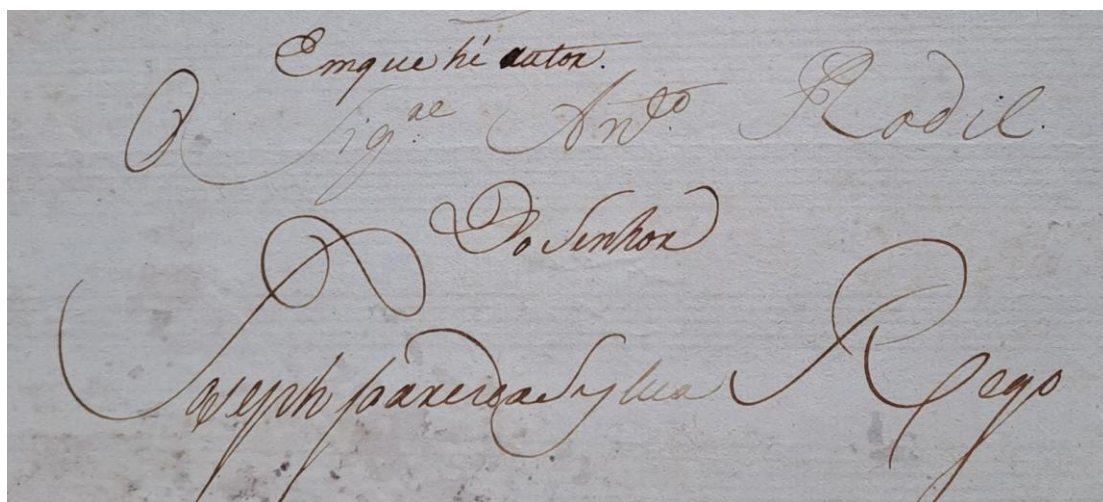 Em que hé autor.
O Sig.ʳᵉ Ant.º Rodil.
Do Senhor
Joseph
Sylva Rego